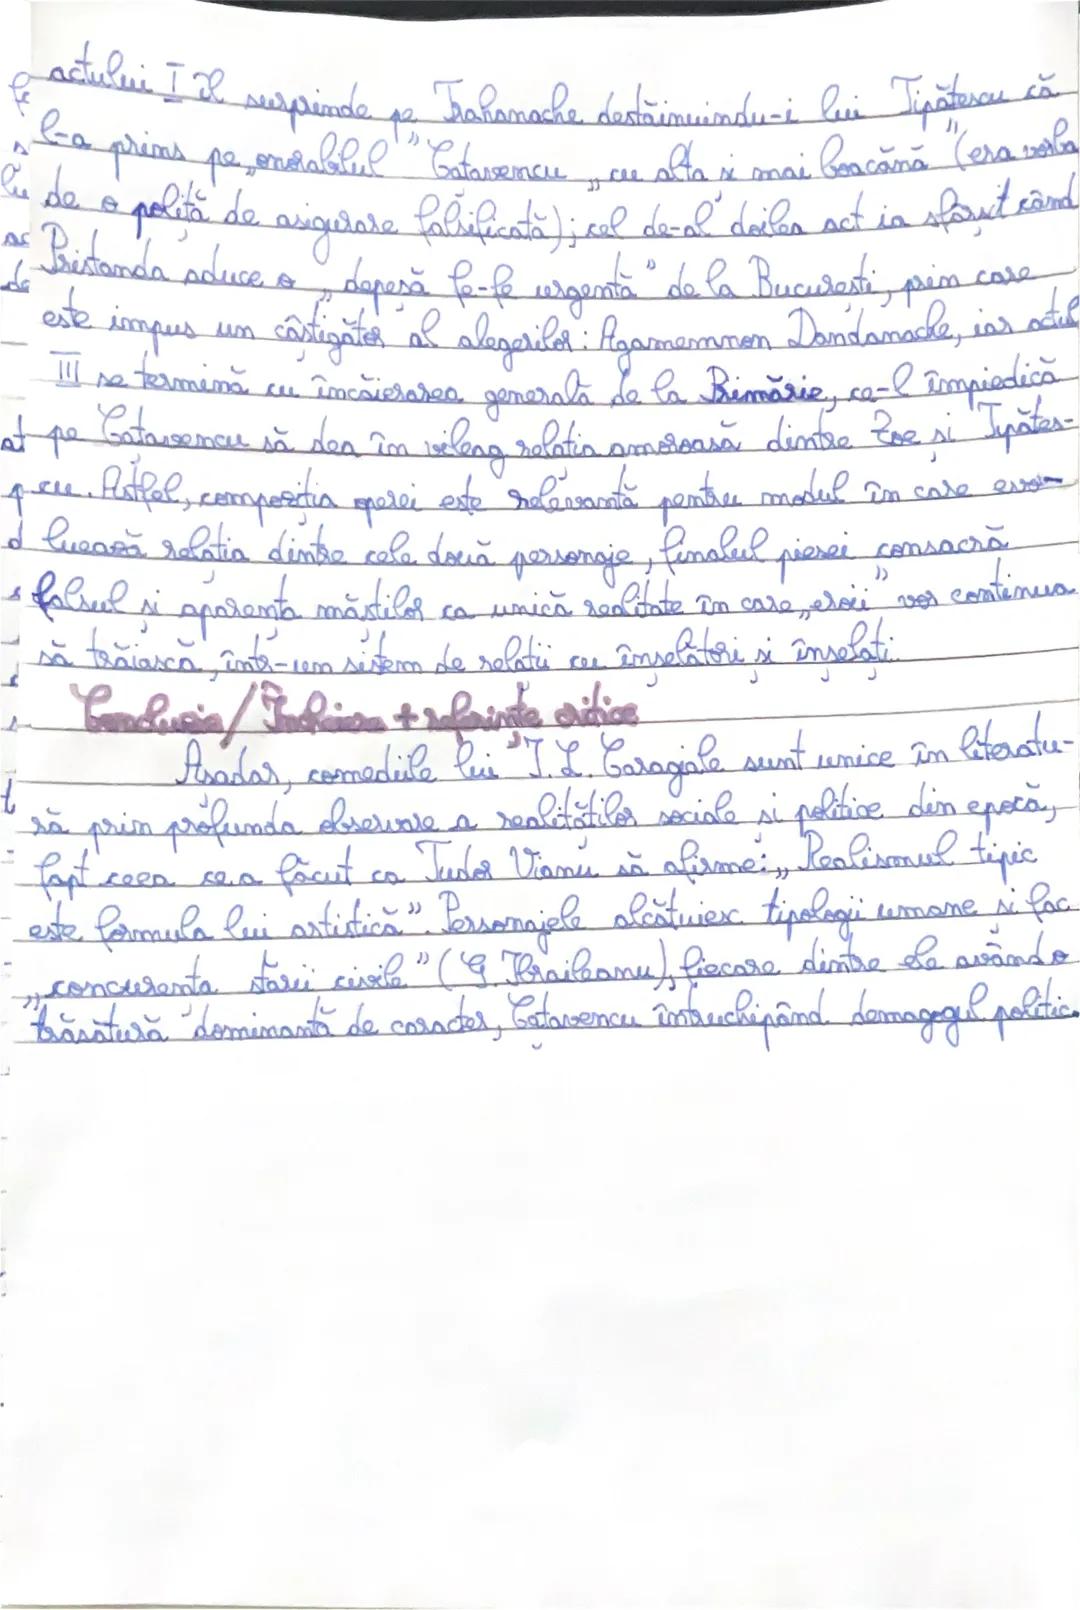 actului I îl surprinde pe Trahanache destăinuindu-i lui Tipătescu că
l-a prins pe „onorabilul" Cațavencu „cu alta și mai boacănă" (era vorba
de o poliță de asigurare falsificată); cel de-al doilea act ia sfârșit când
Pristanda aduce o „depeșă fe-fe urgentă" de la București, prin care
este impus un câștigător al alegerilor: Agamemnon Dandanache, iar actul
III se termină cu încăierarea generală de la Primărie, ce-l împiedică
pe Cațavencu să dea în vileag relația amoroasă dintre Zoe și Tipătes-
cu. Astfel, compoziția operei este relevantă pentru modul în care evo-
luează relația dintre cele două personaje, finalul piesei consacră
falsul și aparența măștilor ca unică realitate în care „eroii" vor continua
să trăiască, într-un sistem de relații cu înșelători și înșelați.
Concluzia/Încheiere + referințe critice
Așadar, comediile lui I.L. Caragiale sunt unice în literatu-
ră prin profunda observare a realităților sociale și politice din epocă,
fapt ceea ce a făcut ca Tudor Vianu să afirme: „Realismul tipic
este formula lui artistică". Personajele alcătuiesc tipologii umane și fac
„concurența stării civile" (G. Ibrăileanu), fiecare dintre ele având o
trăsătură dominantă de caracter, Cațavencu întruchipând demagogul politic.